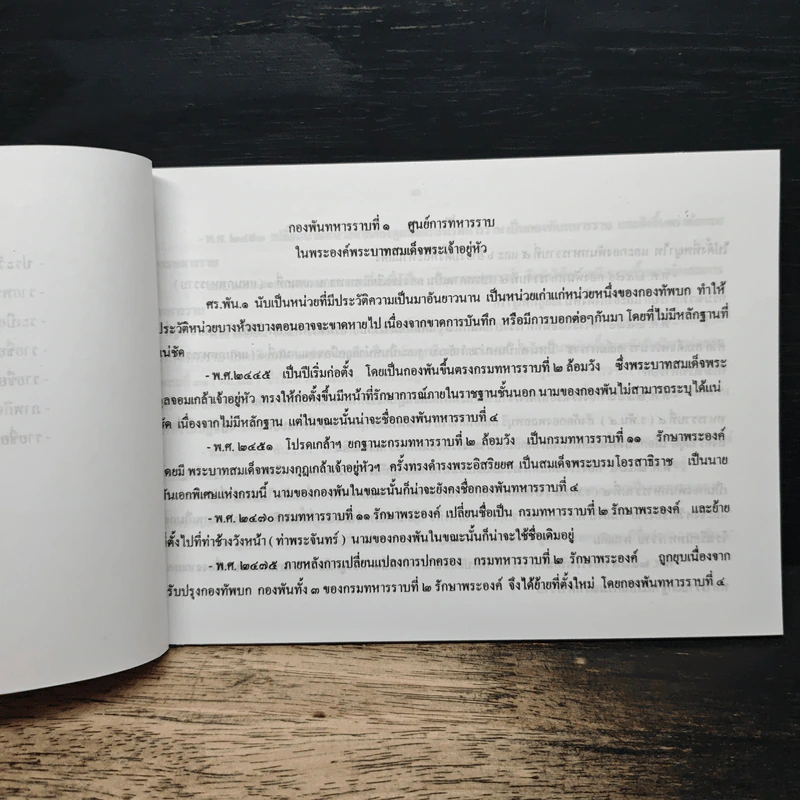 กองพันทหารราบที่ ๑ ศูนย์การทหารราบ
ในพระองค์พระบาทสมเด็จพระเจ้าอยู่หัว
ศร.พัน.๑ นับเป็นหน่วยที่มีประวัติความเป็นมาอันยาวนาน เป็นหน่วยเก่าแก่หน่วยหนึ่งของกองทัพบก ทำให้
ประวัติหน่วยบางห้วงบางตอนอาจจะขาดหายไป เนื่องจากขาดการบันทึก หรือมีการบอกต่อๆกันมา โดยที่ไม่มีหลักฐานที่
น่ชัด
- พ.ศ.๒๔๔๕ เป็นปีเริ่มก่อตั้ง โดยเป็นกองพันขึ้นตรงกรมทหารราบที่ ๒ ล้อมวัง ซึ่งพระบาทสมเด็จพระ
ุลจอมเกล้าเจ้าอยู่หัว ทรงให้ก่อตั้งขึ้นมีหน้าที่รักษาการณ์ภายในราชฐานชั้นนอก นามของกองพันไม่สามารถระบุได้แน่
ชัด เนื่องจากไม่มีหลักฐาน แต่ในขณะนั้นน่าจะชื่อกองพันทหารราบที่ ๔
- พ.ศ. ๒๔๕๑ โปรดเกล้าฯ ยกฐานะกรมทหารราบที่ ๒ ล้อมวัง เป็นกรมทหารราบที่ ๑๑ รักษาพระองค์
โดยมี พระบาทสมเด็จพระมงกุฎเกล้าเจ้าอยู่หัวฯ ครั้งทรงดำรงพระอิสริยยศ เป็นสมเด็จพระบรมโอรสาธิราช เป็นนาย
พันเอกพิเศษแห่งกรมนี้ นามของกองพันในขณะนั้นก็น่าจะยังคงชื่อกองพันทหารราบที่ ๔
- พ.ศ. ๒๔๗๐ กรมทหารราบที่ ๑๑ รักษาพระองค์ เปลี่ยนชื่อเป็น กรมทหารราบที่ ๒ รักษาพระองค์ และย้าย
ที่ตั้งไปที่ท่าช้างวังหน้า ( ท่าพระจันทร์ ) นามของกองพันในขณะนั้นก็น่าจะใช้ชื่อเดิมอยู่
- พ.ศ. ๒๔๗๕ ภายหลังการเปลี่ยนแปลงการปกครอง กรมทหารราบที่ ๒ รักษาพระองค์ ถูกยุบเนื่องจาก
รับปรุงกองทัพบก กองพันทั้ง ๓ ของกรมทหารราบที่ ๒ รักษาพระองค์ จึงได้ย้ายที่ตั้งใหม่ โดยกองพันทหารราบที่ ๔